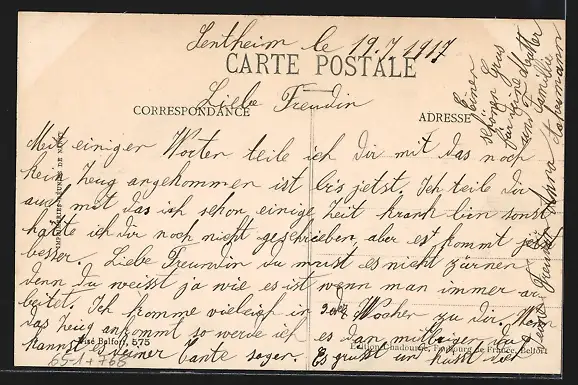 Sentheim le 19.7.1917
CARTE POSTALE
Liebe Freundin
CORRESPONDANCE
ADRESSE
Mit einiger Worter teile ich dir mit das noch
kein Zeug angekommen ist bis jetst. Ich teile dir
auch mit das ich schon einige Zeit krank bin sonst
hätte ich dir noch nicht geschrieben, aber est kommt jetz
besser. Liebe Freundin du must es nicht zürnen
denn du weisst ja wie es ist wenn man immer ar
beitet. Ich komme vieleigh in 3 oder 4 Wocher zu dir. Wen
das Zeug ankommt so werde ich es dan mitbriger und
kannst es deiner Tante sager. Es grüsst un küsst dich
deine Freundin Anna Habermann
Einer
schönen Grus
für deine Mutter
und Familie
IMPRIMERIES RÉUNIES DE NANCY
Visé Belfort, 575
Edition Chadourne, Faubourg de France, Belfort
65-1 + 768